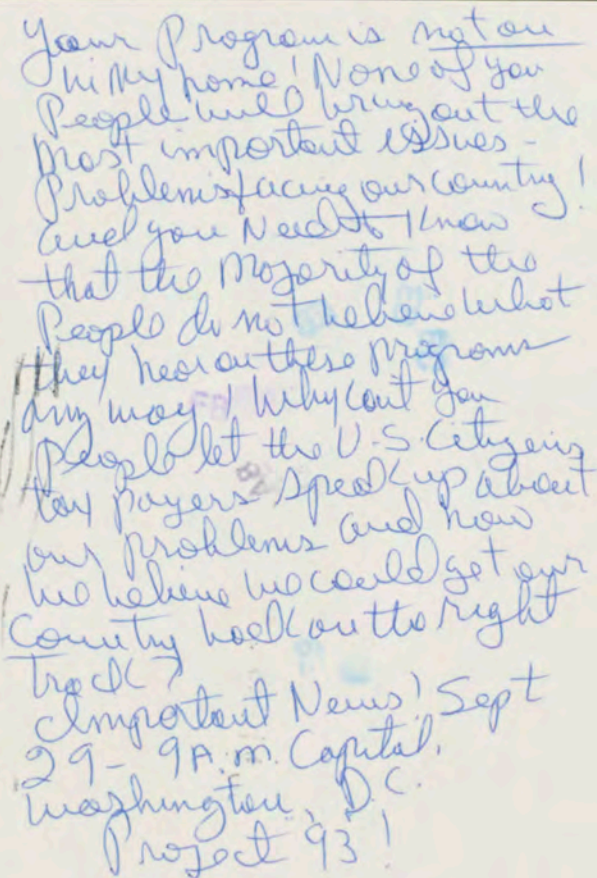 Your Program is not on
in my home! None of you
People will bring out the
most important issues -
Problems facing our country!
and you Need to Know
that the Majority of the
People do not believe what
they hear on these programs
any way! Why cant you
People let the U.S. Citizens
tax payers speak up about
our problems and how
we believe we could get our
Country back on the right
track?
Important News! Sept
29 - 9 A.m. Capital,
Washington, D.C.
Project 93!